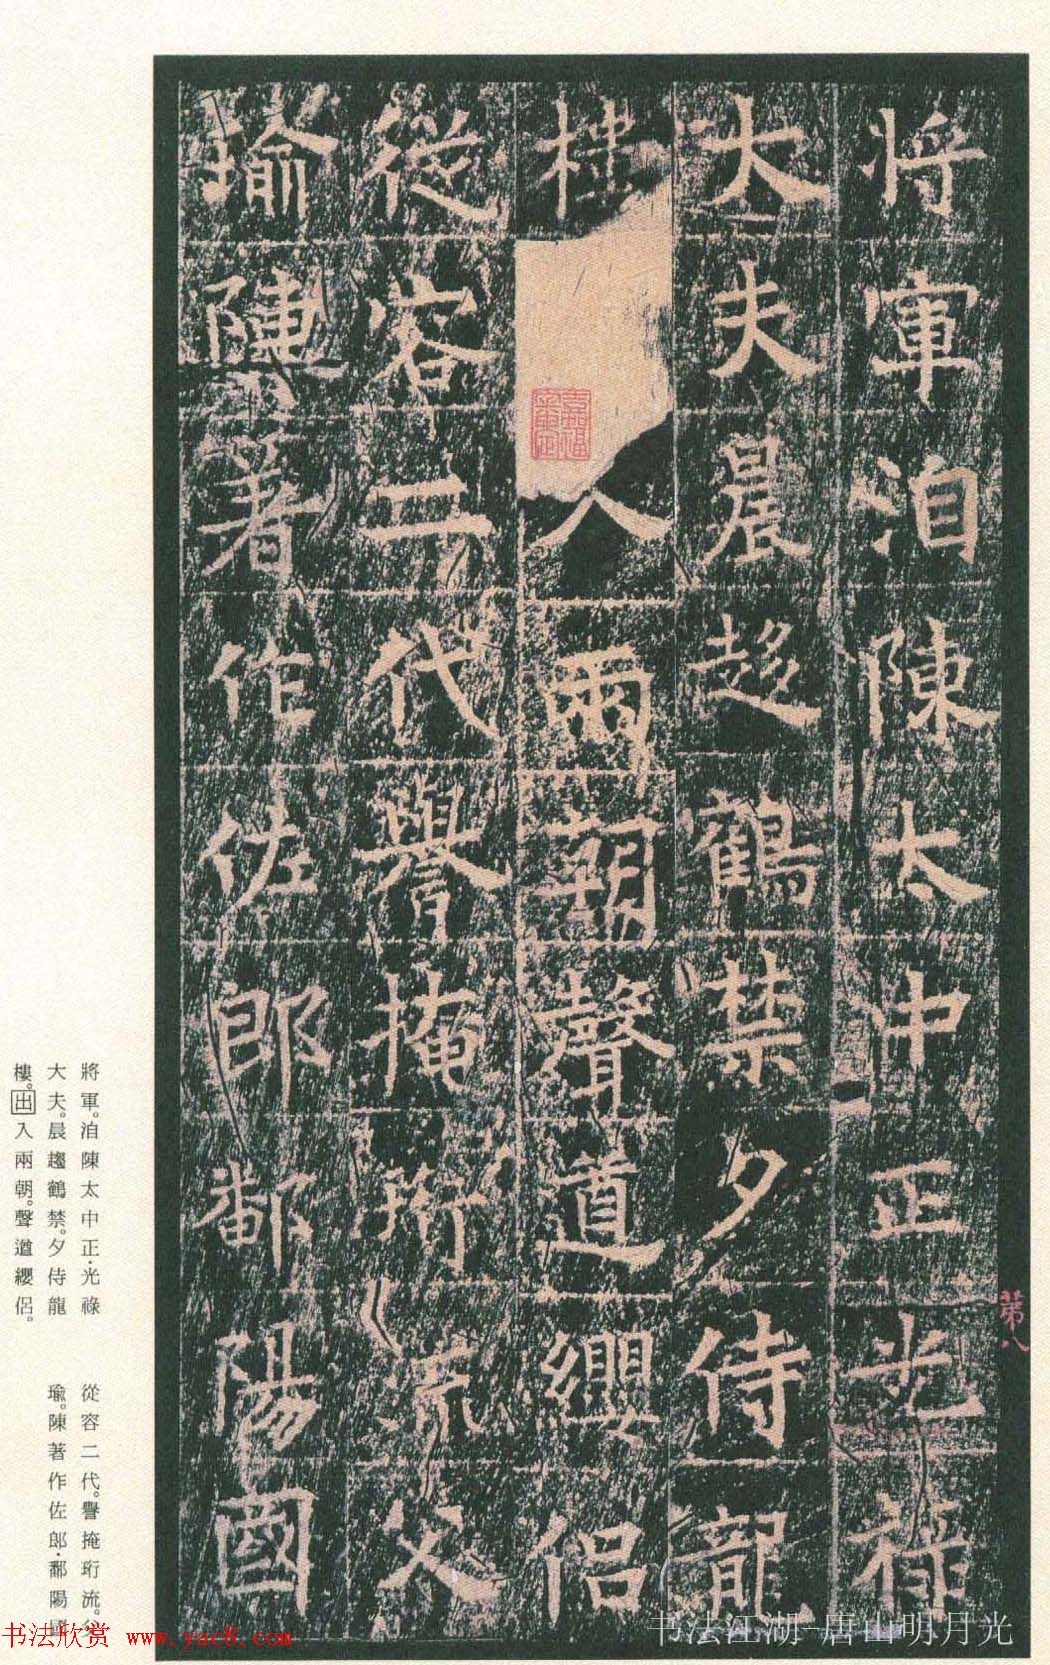 將軍洎陳太中正光祿
大夫晨趍鶴禁夕侍龍
樓入兩朝聲道纓侶
從容二代譽掩珩流父
瑜陳著作佐郎鄱陽國
第八
將軍。洎陳太中正·光祿
大夫。晨趨鶴禁。夕侍龍
樓。出入兩朝。聲道纓侶。
從容二代。譽掩珩流。父
瑜。陳著作佐郎·鄱陽國
书法欣赏 www.yac8.com
书法江湖-唐山明月光